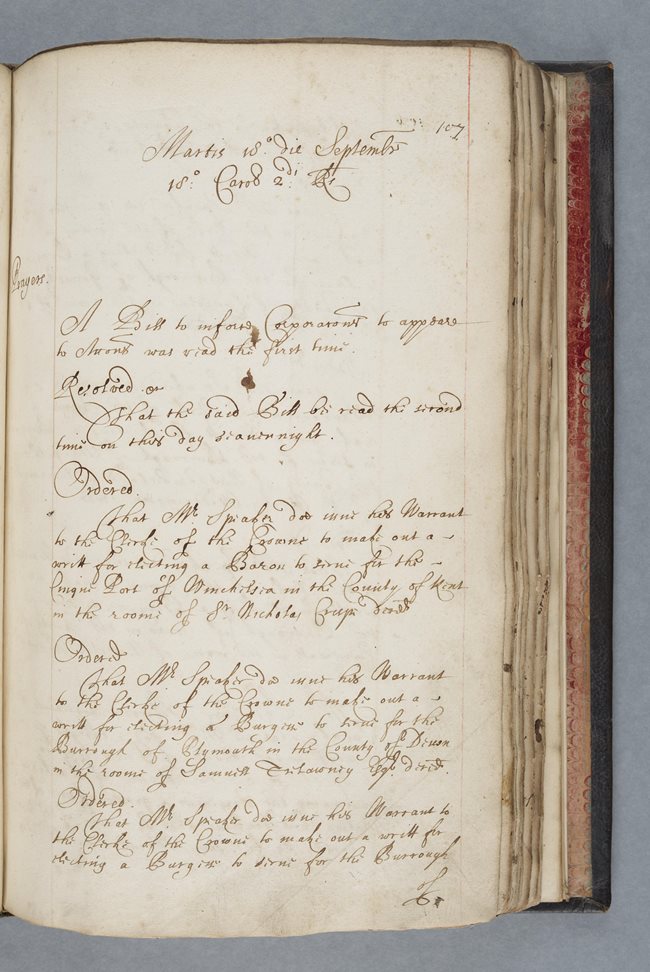 107
Martis 18° die Septembr
18°: Carol 2di: Rs
Prayers.
A Bill to inforce Corporacons to appeare
to Accons was read the first time.
Resolved &c
That the said Bill be read the second
time on this day seavennight.
Ordered.
That Mr Speaker doe issue his Warrant
to the Clerke of the Crowne to make out a
writt for electing a Baron to serve for the
Cinque Port of Winchelsea in the County of Kent
in the roome of Sr Nicholas Crispe
Ordered
That Mr Speaker doe issue his Warrant
to the Clerke of the Crowne to make out a
writt for electing a Burgess to serve for the
Burrough of Plymouth in the County of Devon
in the roome of Samuell Trelawney Esqr
Ordered.
That Mr Speaker doe issue his Warrant to
the Clerke of the Crowne to make out a writt for
electing a Burgess to serve for the Burrough
of